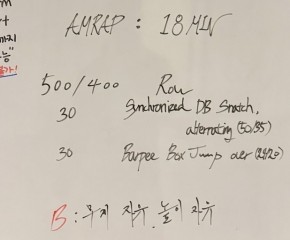 까지
능"
AMRAP : 18 MIN
500/400 Row
30 Synchronized DB Snatch,
alternating (50/35)
30 Burpee Box Jump over (24/20)
B : 무게 자유, 높이 자유